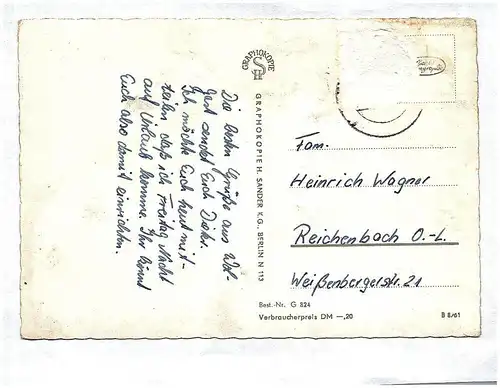 Die besten Grüße aus Wol-
gast sendet Euch
Ich möchte Euch heut mit-
teilen daß ich Freitag Nacht
auf Urlaub komme. Ihr könnt
Euch also damit einrichten.
GRAPHOKOPIE
H S
GRAPHOKOPIE H. SANDER K.G., BERLIN N 113
Fam.
Heinrich Wagner
Reichenbach O.-L.
Weißenbergerstr. 21
Best.-Nr. G 824
Verbraucherpreis DM —,20
B 8/61